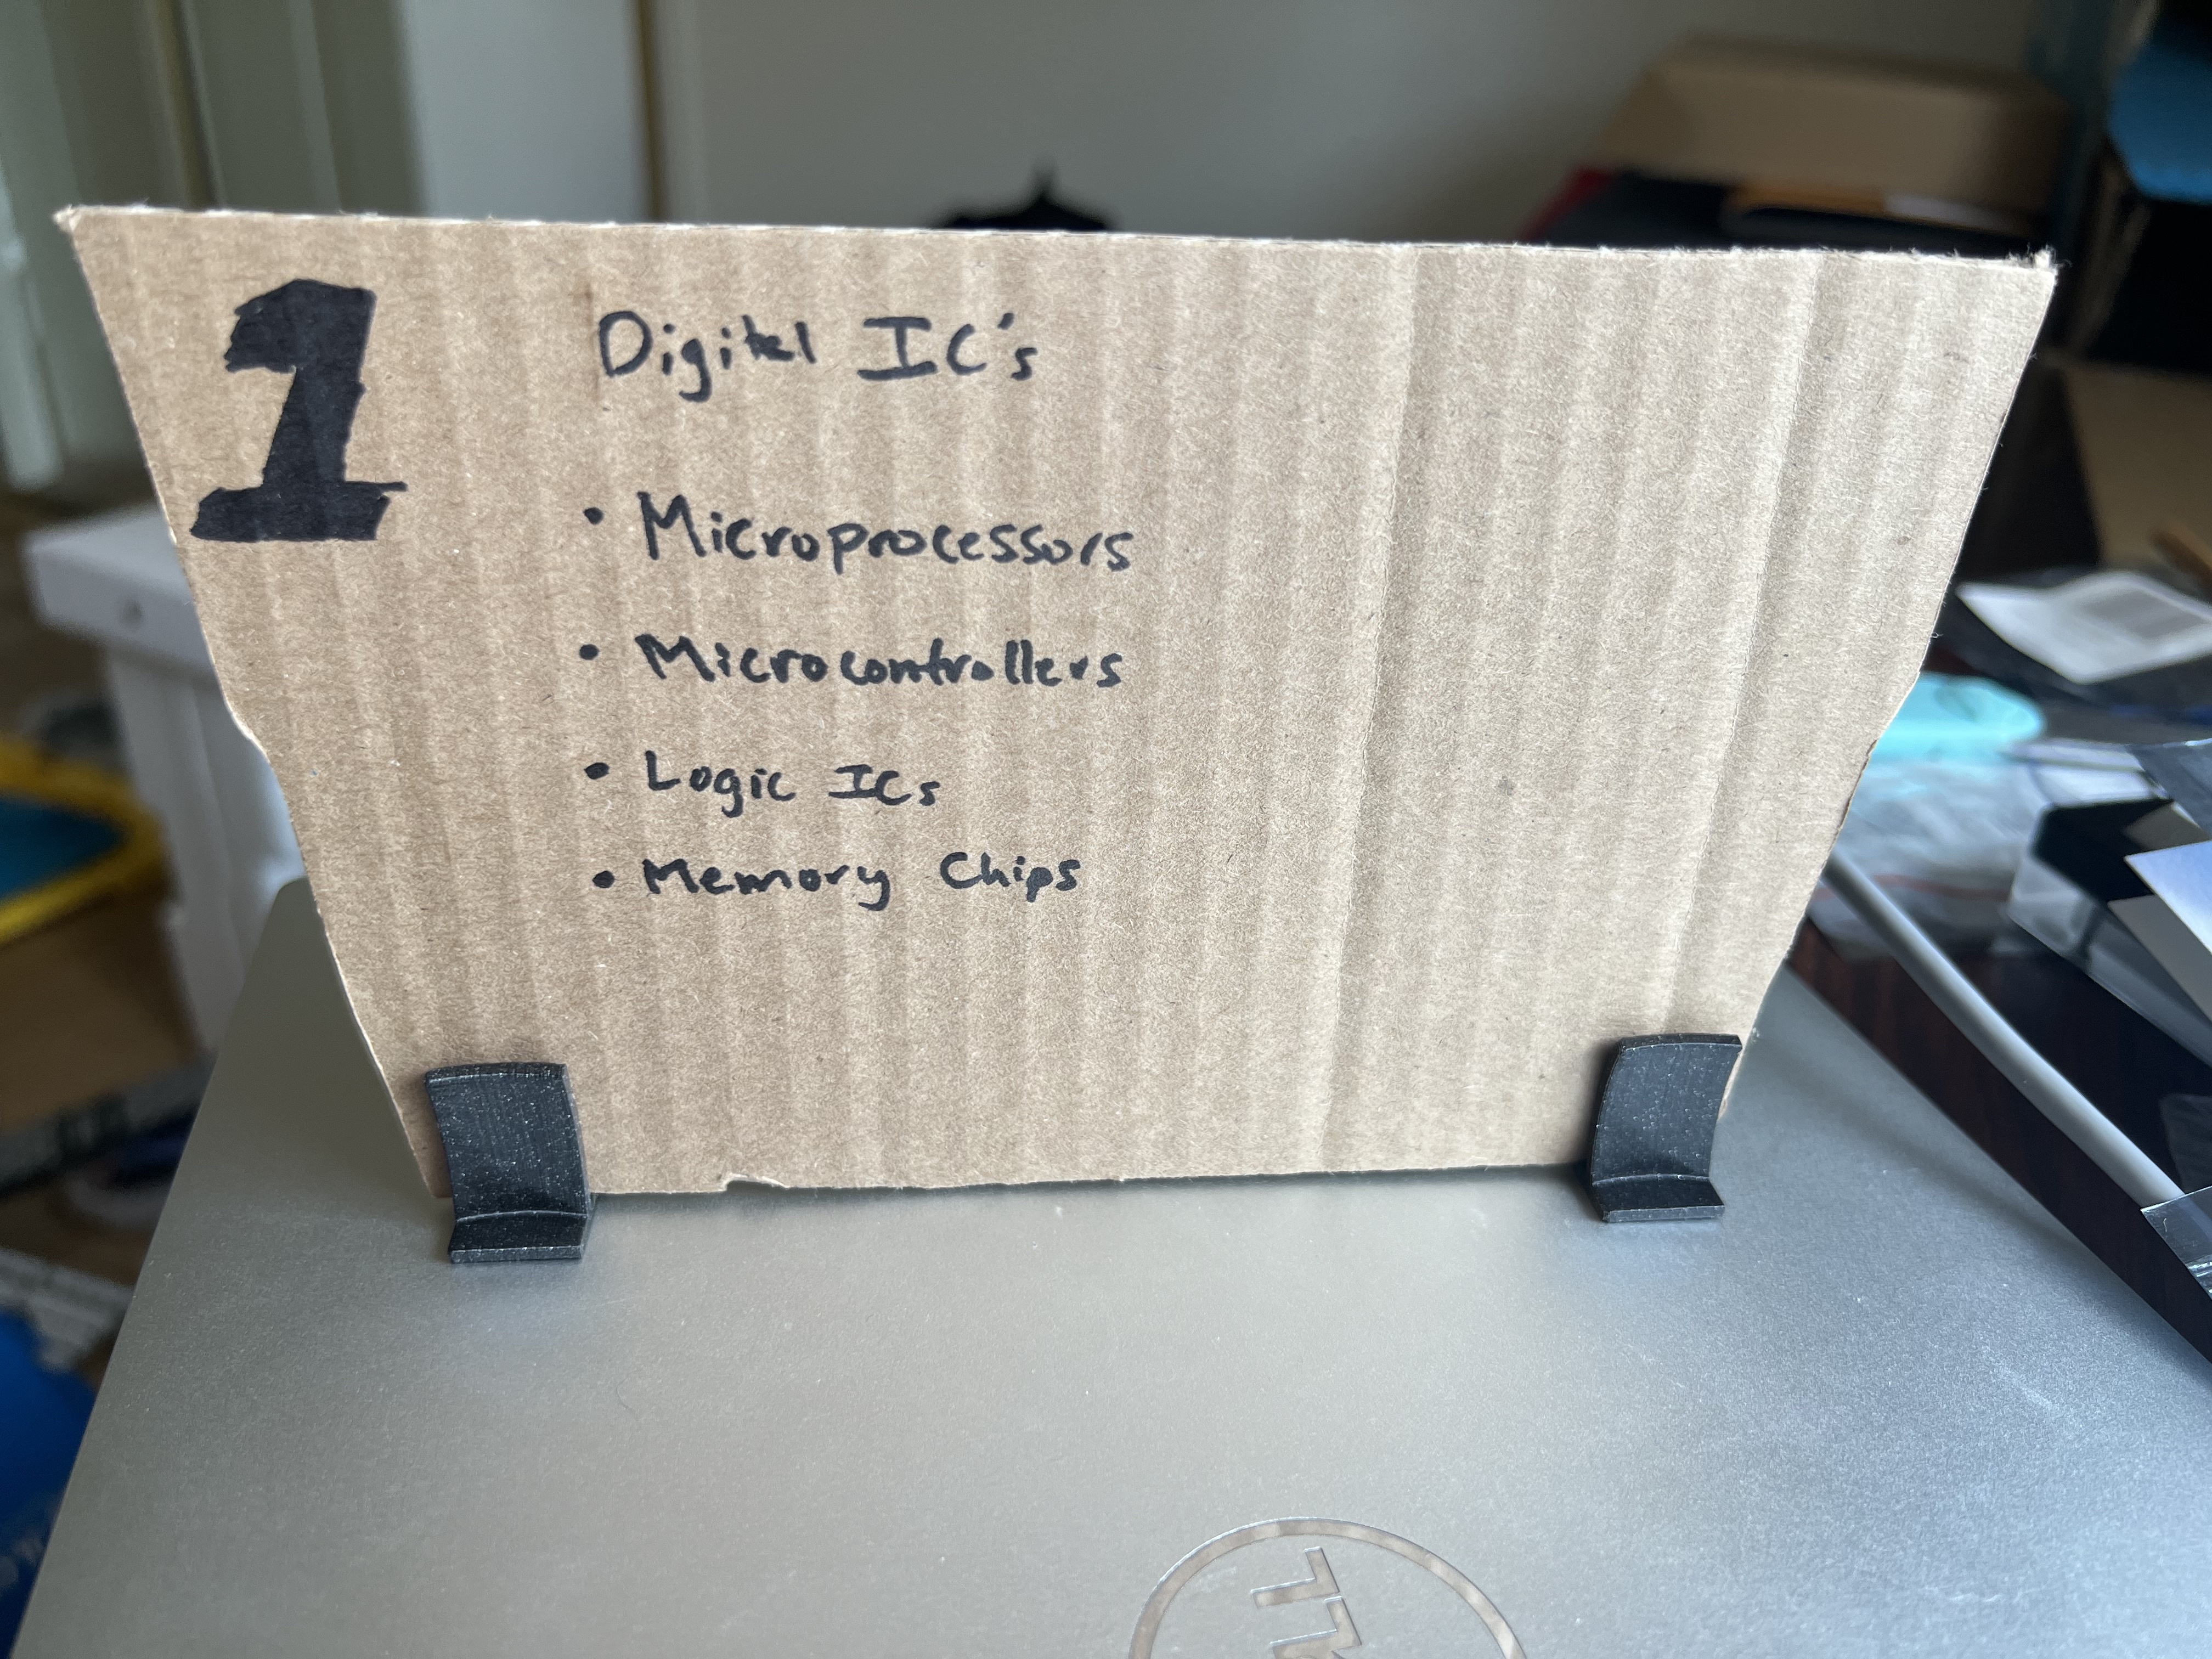 1
Digital IC's
• Microprocessors
• Microcontrollers
• Logic ICs
• Memory Chips